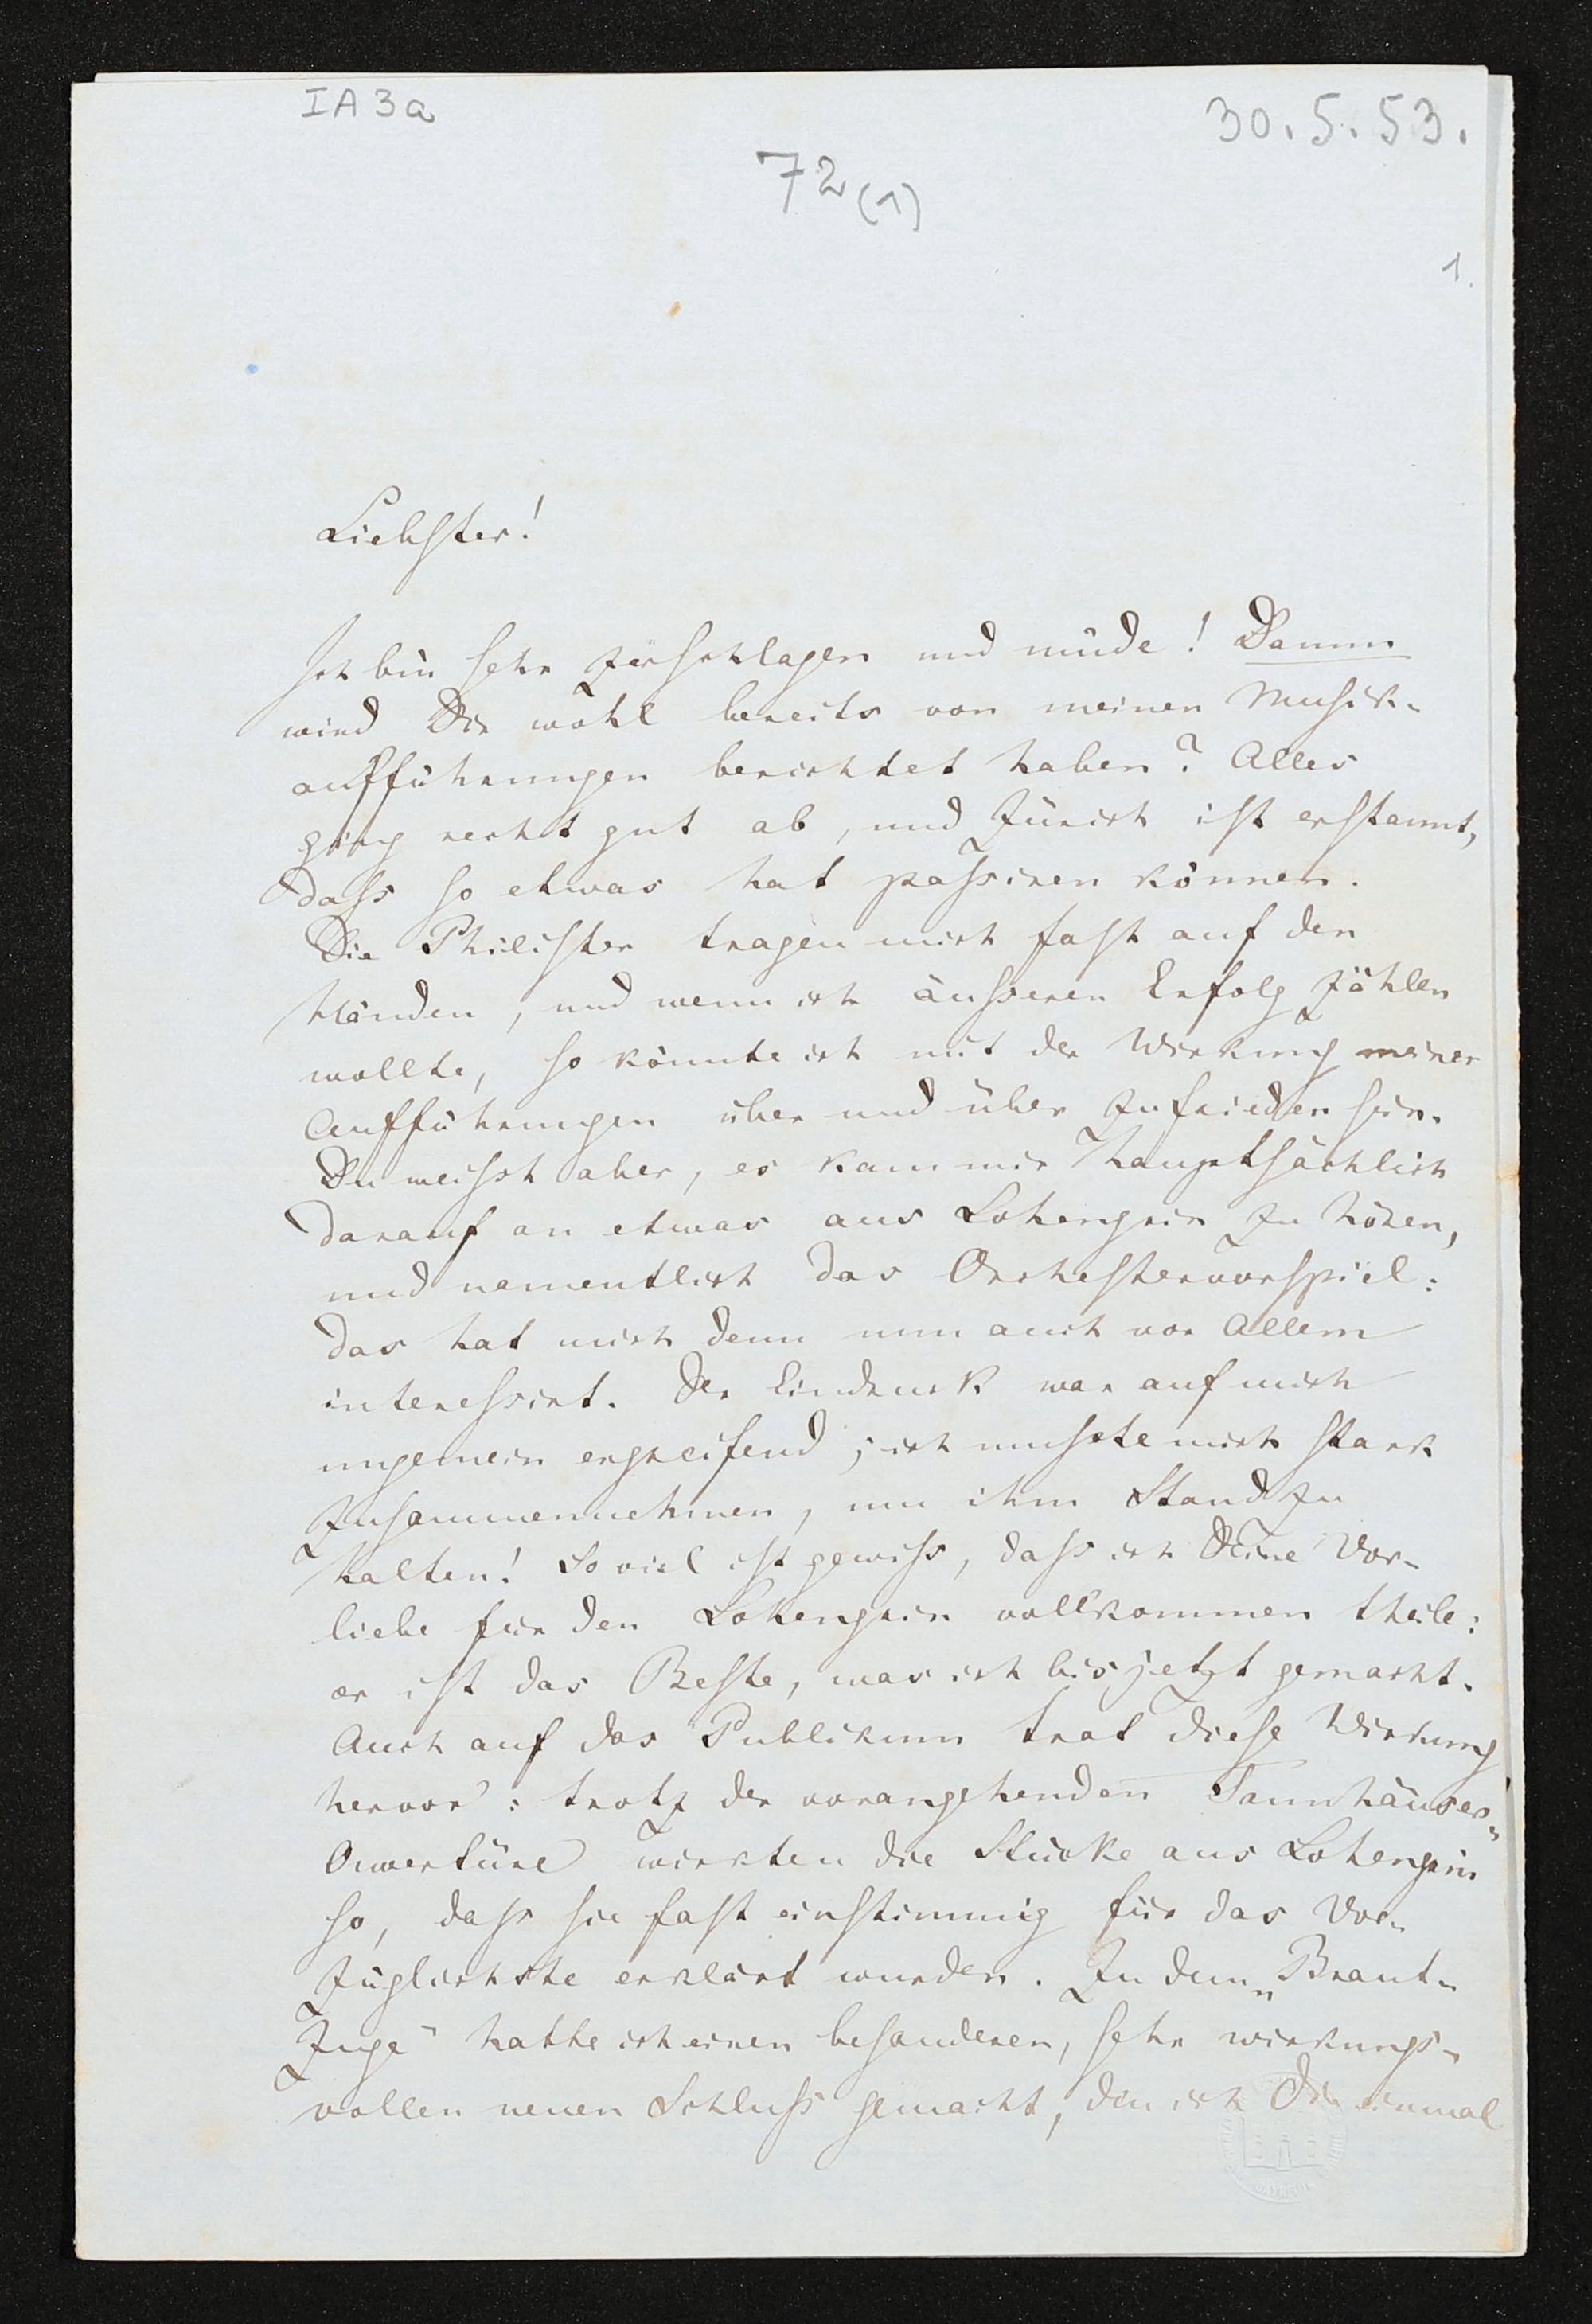 IA3a
30.5.53.
72(1)
1.
Liebster!
Ich bin sehr zerschlagen und müde! Damm
wird Dir wohl bereits von meinen Musik-
aufführungen berichtet haben? Alles
ging recht gut ab, und Zürich ist erstaunt,
dass so etwas hat passiren können.
Die Philister tragen mich fast auf den
Händen, und wenn ich äusseren Erfolg zählen
wollte, so könnte ich mit der Wirkung meiner
Aufführungen über und über zufrieden sein.
Du weisst aber, es kam mir hauptsächlich
darauf an etwas aus Lohengrin zu hören,
und namentlich das Orchestervorspiel:
das hat mich denn nun auch vor Allem
interessirt. Der Eindruck war auf mich
ungemein ergreifend; ich musste mich stark
zusammennehmen, um ihm Stand zu
halten! So viel ist gewiss, dass ich Deine Vor-
liebe für den Lohengrin vollkommen theile:
er ist das Beste, was ich bis jetzt gemacht.
Auch auf das Publikum trat diese Wirkung
hervor: trotz der vorangehenden Tannhäuser-
Ouvertüre wirkten die Stücke aus Lohengrin
so, dass sie fast einstimmig für das Vor-
züglichste erklärt wurden. Zu dem „Braut-
zuge“ hatte ich einen besonderen, sehr wirkungs-
vollen neuen Schluss gemacht, den ich Dir einmal